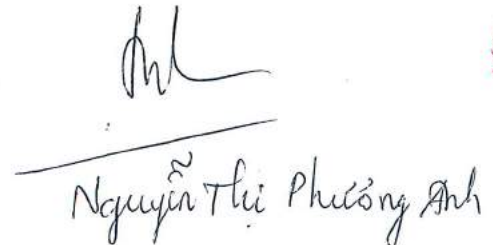 Nguyễn Thị Phương Anh